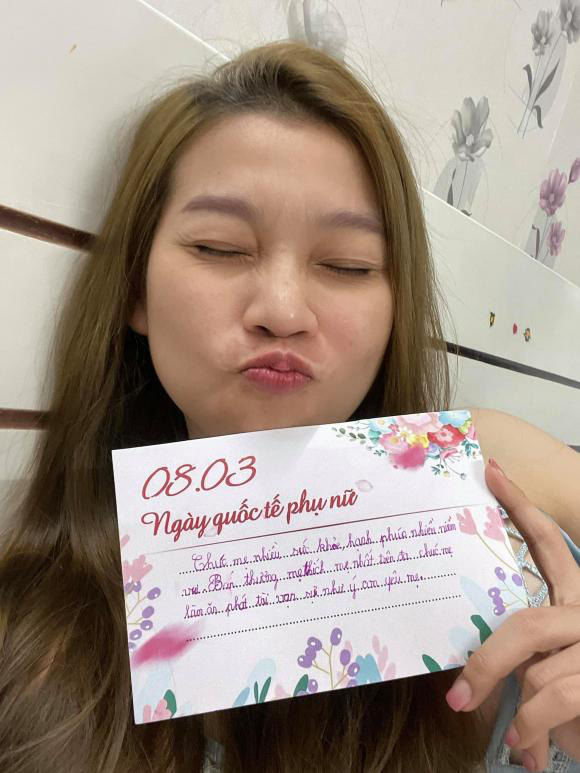 08.03
Ngày quốc tế phụ nữ
Chúc mẹ nhiều sức khỏe, hạnh phúc nhiều niềm
vui. thương mẹ mẹ nhất trên đời chúc mẹ
làm ăn phát tài vạn sự như ý con yêu mẹ.